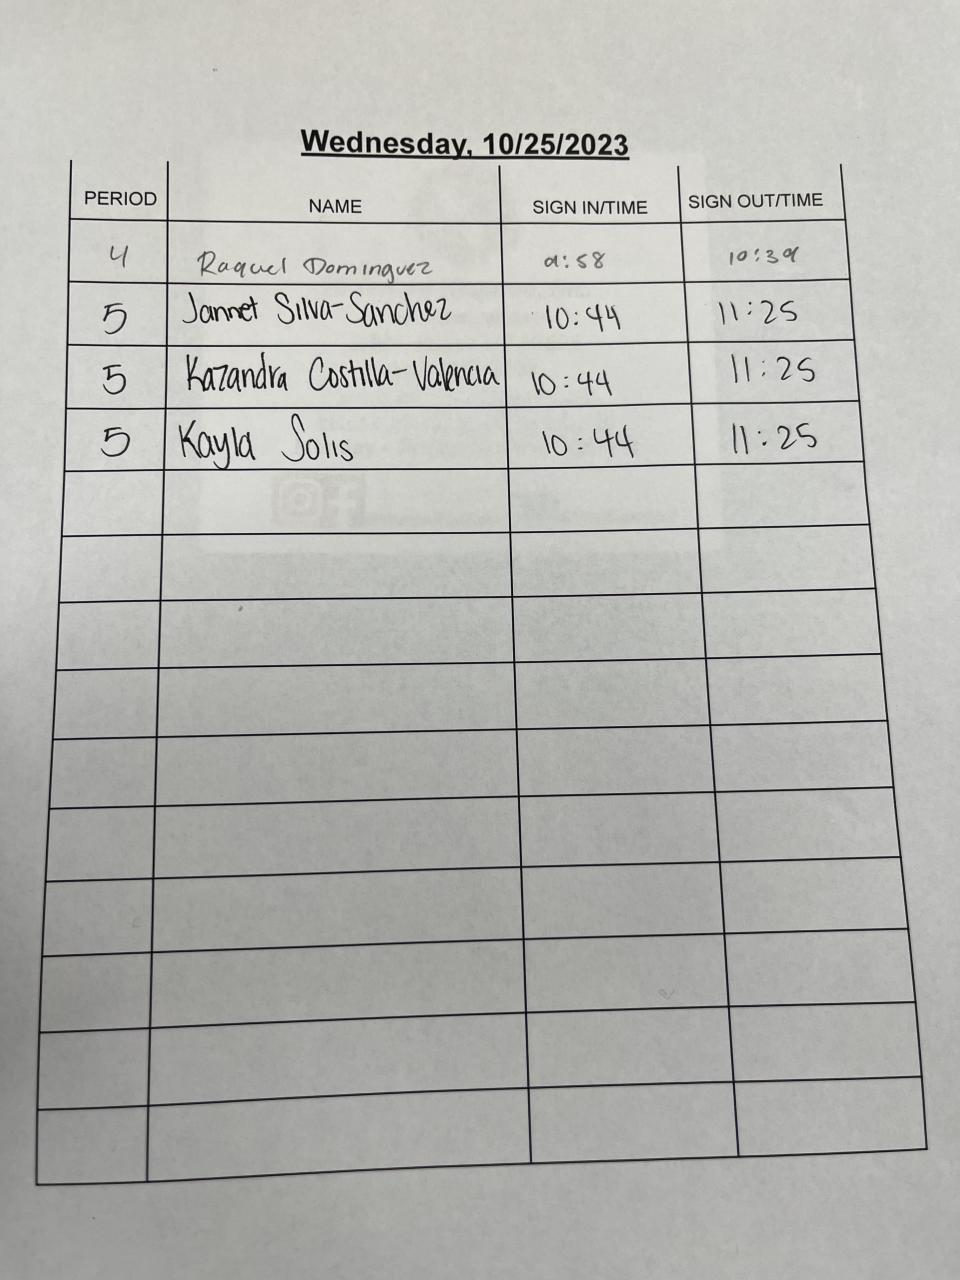 Wednesday, 10/25/2023
PERIOD NAME SIGN IN/TIME SIGN OUT/TIME
4 Raquel Dominguez 9:58 10:39
5 Jannet Silva-Sanchez 10:44 11:25
5 Kazandra Costilla-Valencia 10:44 11:25
5 Kayla Solis 10:44 11:25